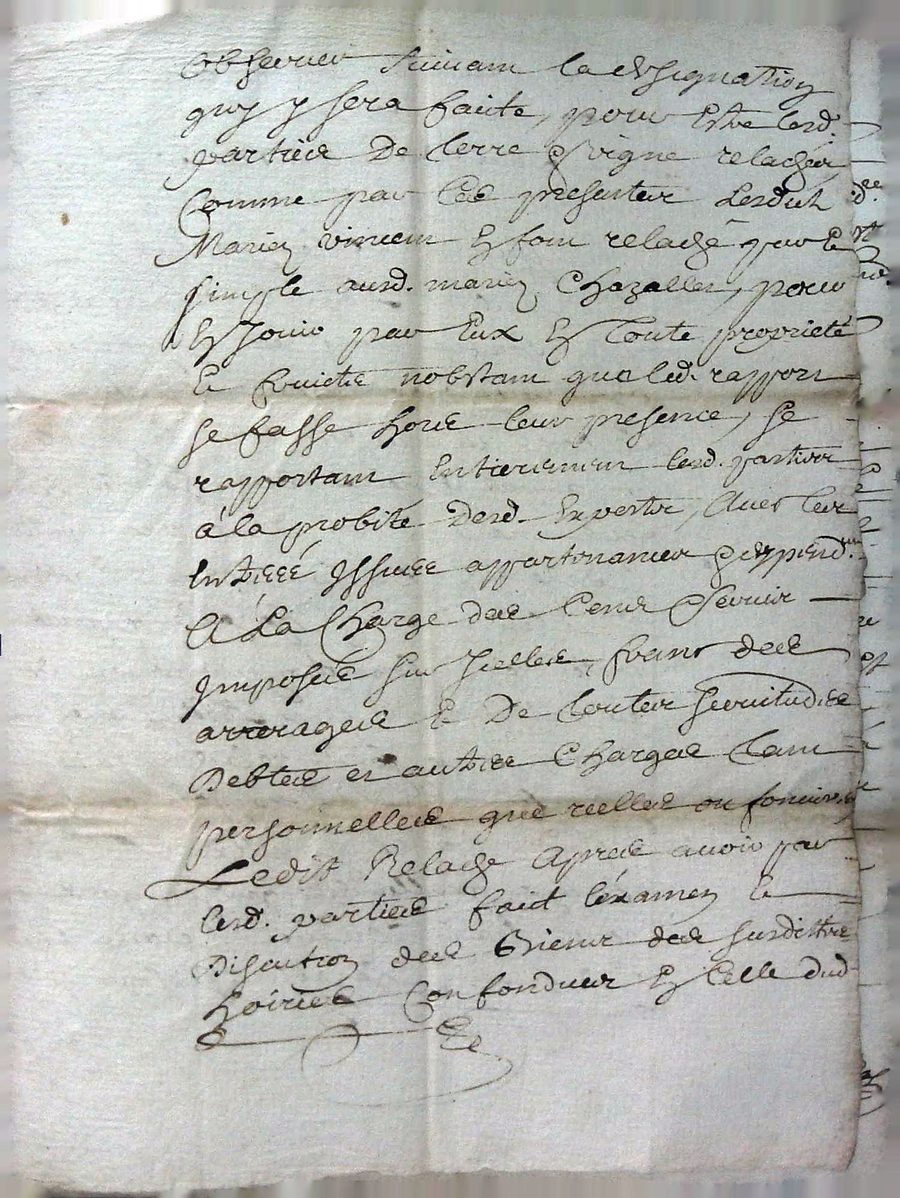 observer suivant la designation
quy y sera faite, pour estre lesd.
parties de terre & vigne relachés
comme par ces presentes lesdits
Mariez vincent en font relaché pur et
simple ausd. mariez Chazalles, pour
en Jouir par Eux en toute proprieté
et fruicts nobstant que led. rapport
se fasse hors leur presence, se
rapportant Entierement lesd. parties
à la probité desd. Experts, Avec leurs
Entrées Issues appartenances & deppend.ces
A La Charge des Cens & servir
Imposés sur Icelles, franc des
arrerages et de toutes servitudes
Debtes et autres Charges tant
personnelles que reelles ou foncieres
Ledit Relaché Apres avoir par
lesd. parties fait l'éxamen et
Discution des Biens des susdittes
hoiries confondues En Celle dud